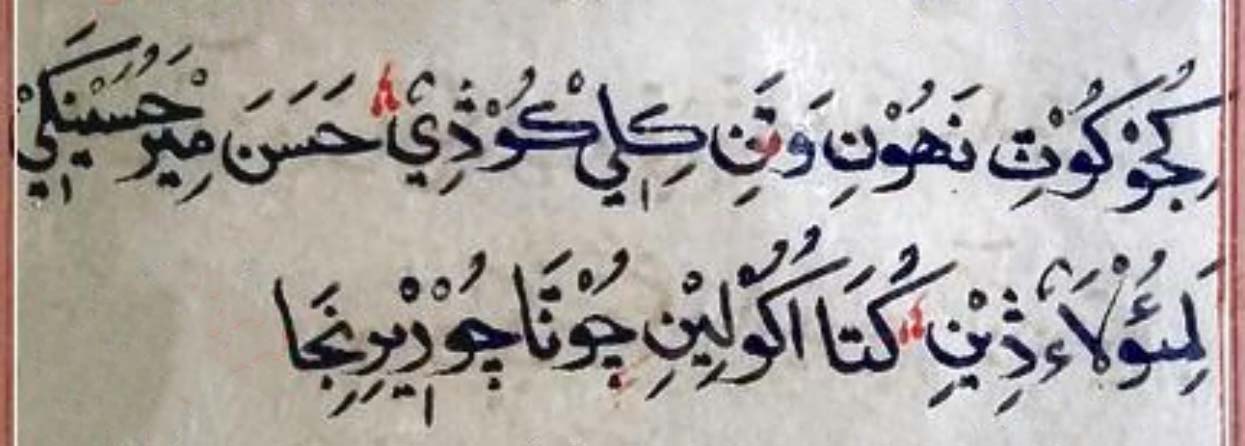 كِجُوْ كُوْتِ نَهُوْنِ وَتَنِ كِلٜي كُوْڎِيْ حَسَنَ مِيْرُ حُسَيْنكِيْ
لِمَئُوْلَاءَ ڎِيْنِ كُتَا اكُوْلِيْنِ چُوْتَا چُوْرٜيْرِنِجَا